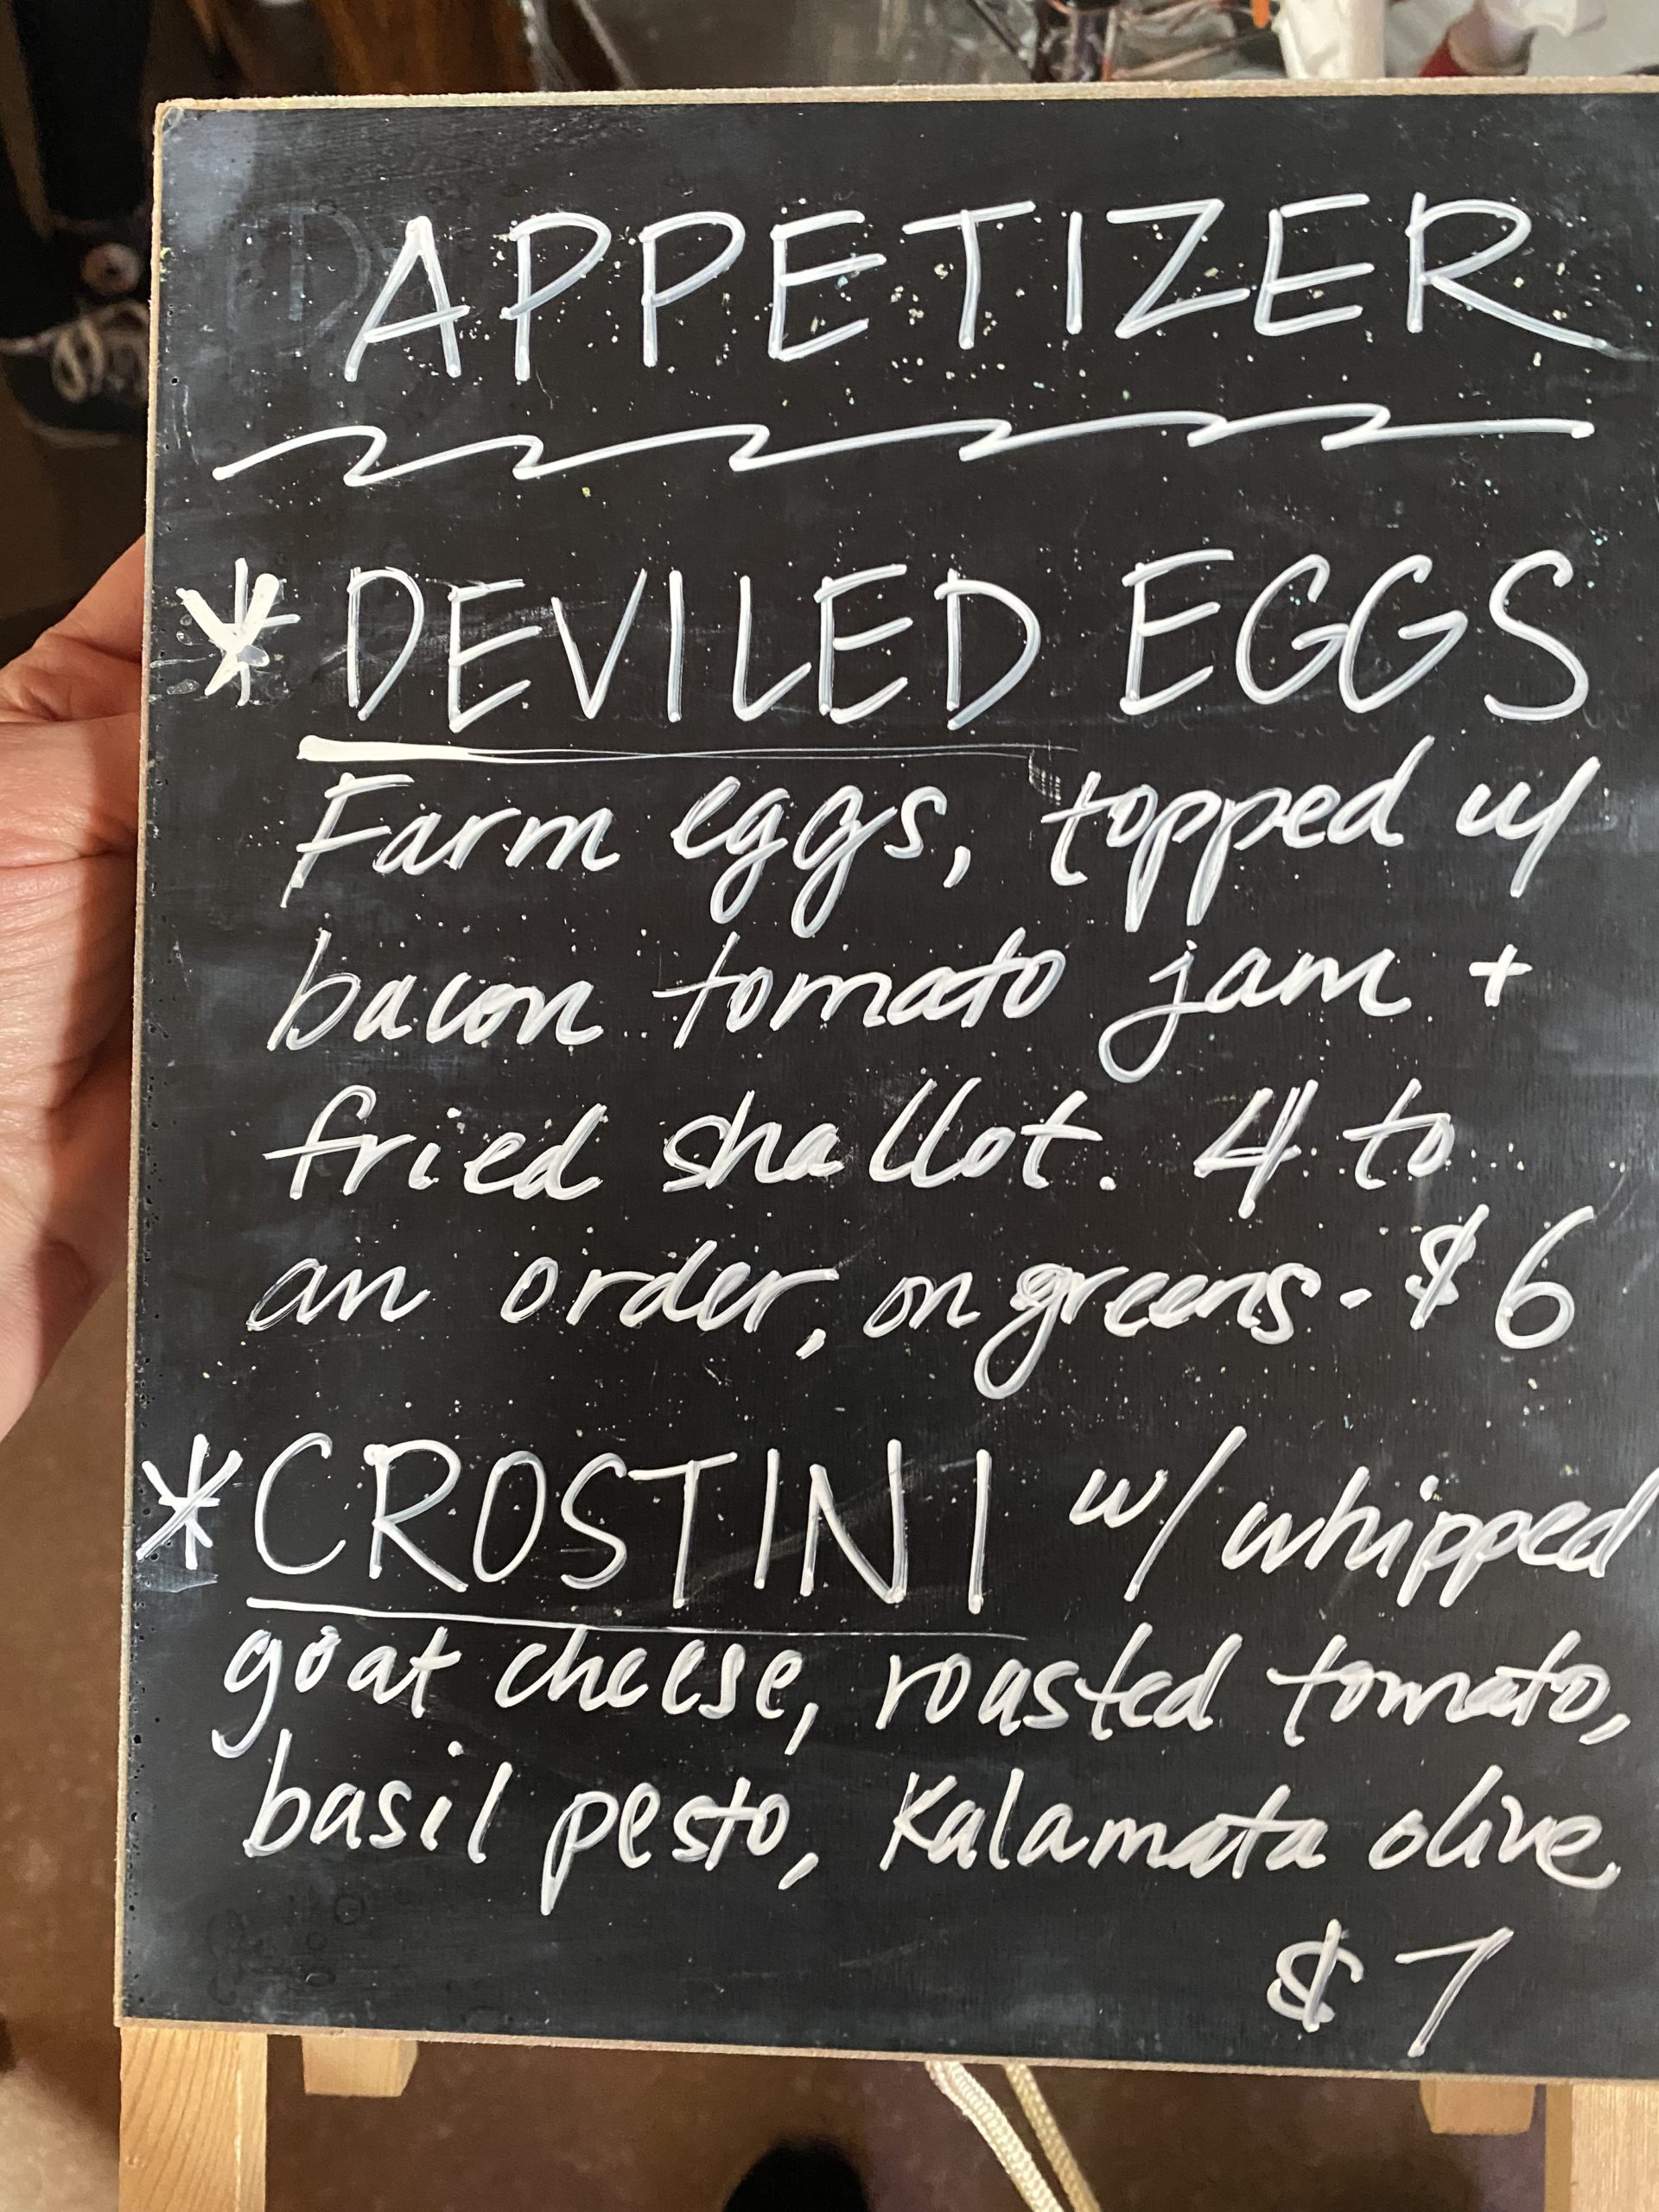 APPETIZER
* DEVILED EGGS
Farm eggs, topped w/
bacon tomato jam +
fried shallot. 4 to
an order, on greens - $6
* CROSTINI w/ whipped
goat cheese, roasted tomato,
basil pesto, Kalamata olive
$7